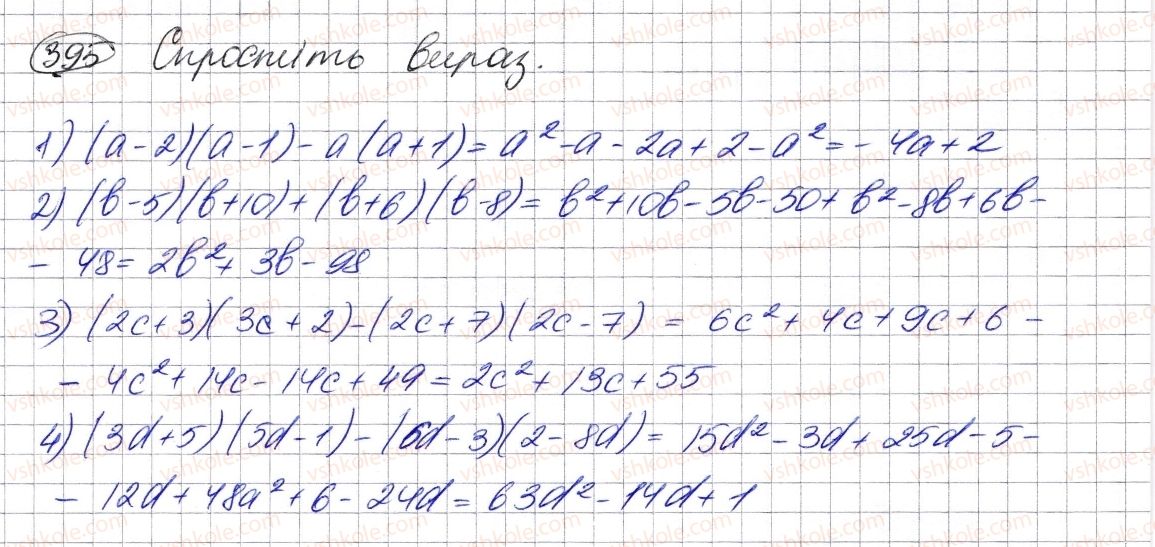 395 Спростіть вираз.
1) (a-2)(a-1)-a(a+1)=a²-a-2a+2-a²=-4a+2
2) (b-5)(b+10)+(b+6)(b-8)=b²+10b-5b-50+b²-8b+6b-
- 48=2b²+3b-98
3) (2c+3)(3c+2)-(2c+7)(2c-7) = 6c²+4c+9c+6 -
- 4c²+14c-14c+49=2c²+13c+55
4) (3d+5)(5d-1)-(6d-3)(2-8d)= 15d²-3d+25d-5-
- 12d+48a²+6-24d=63d²-14d+1